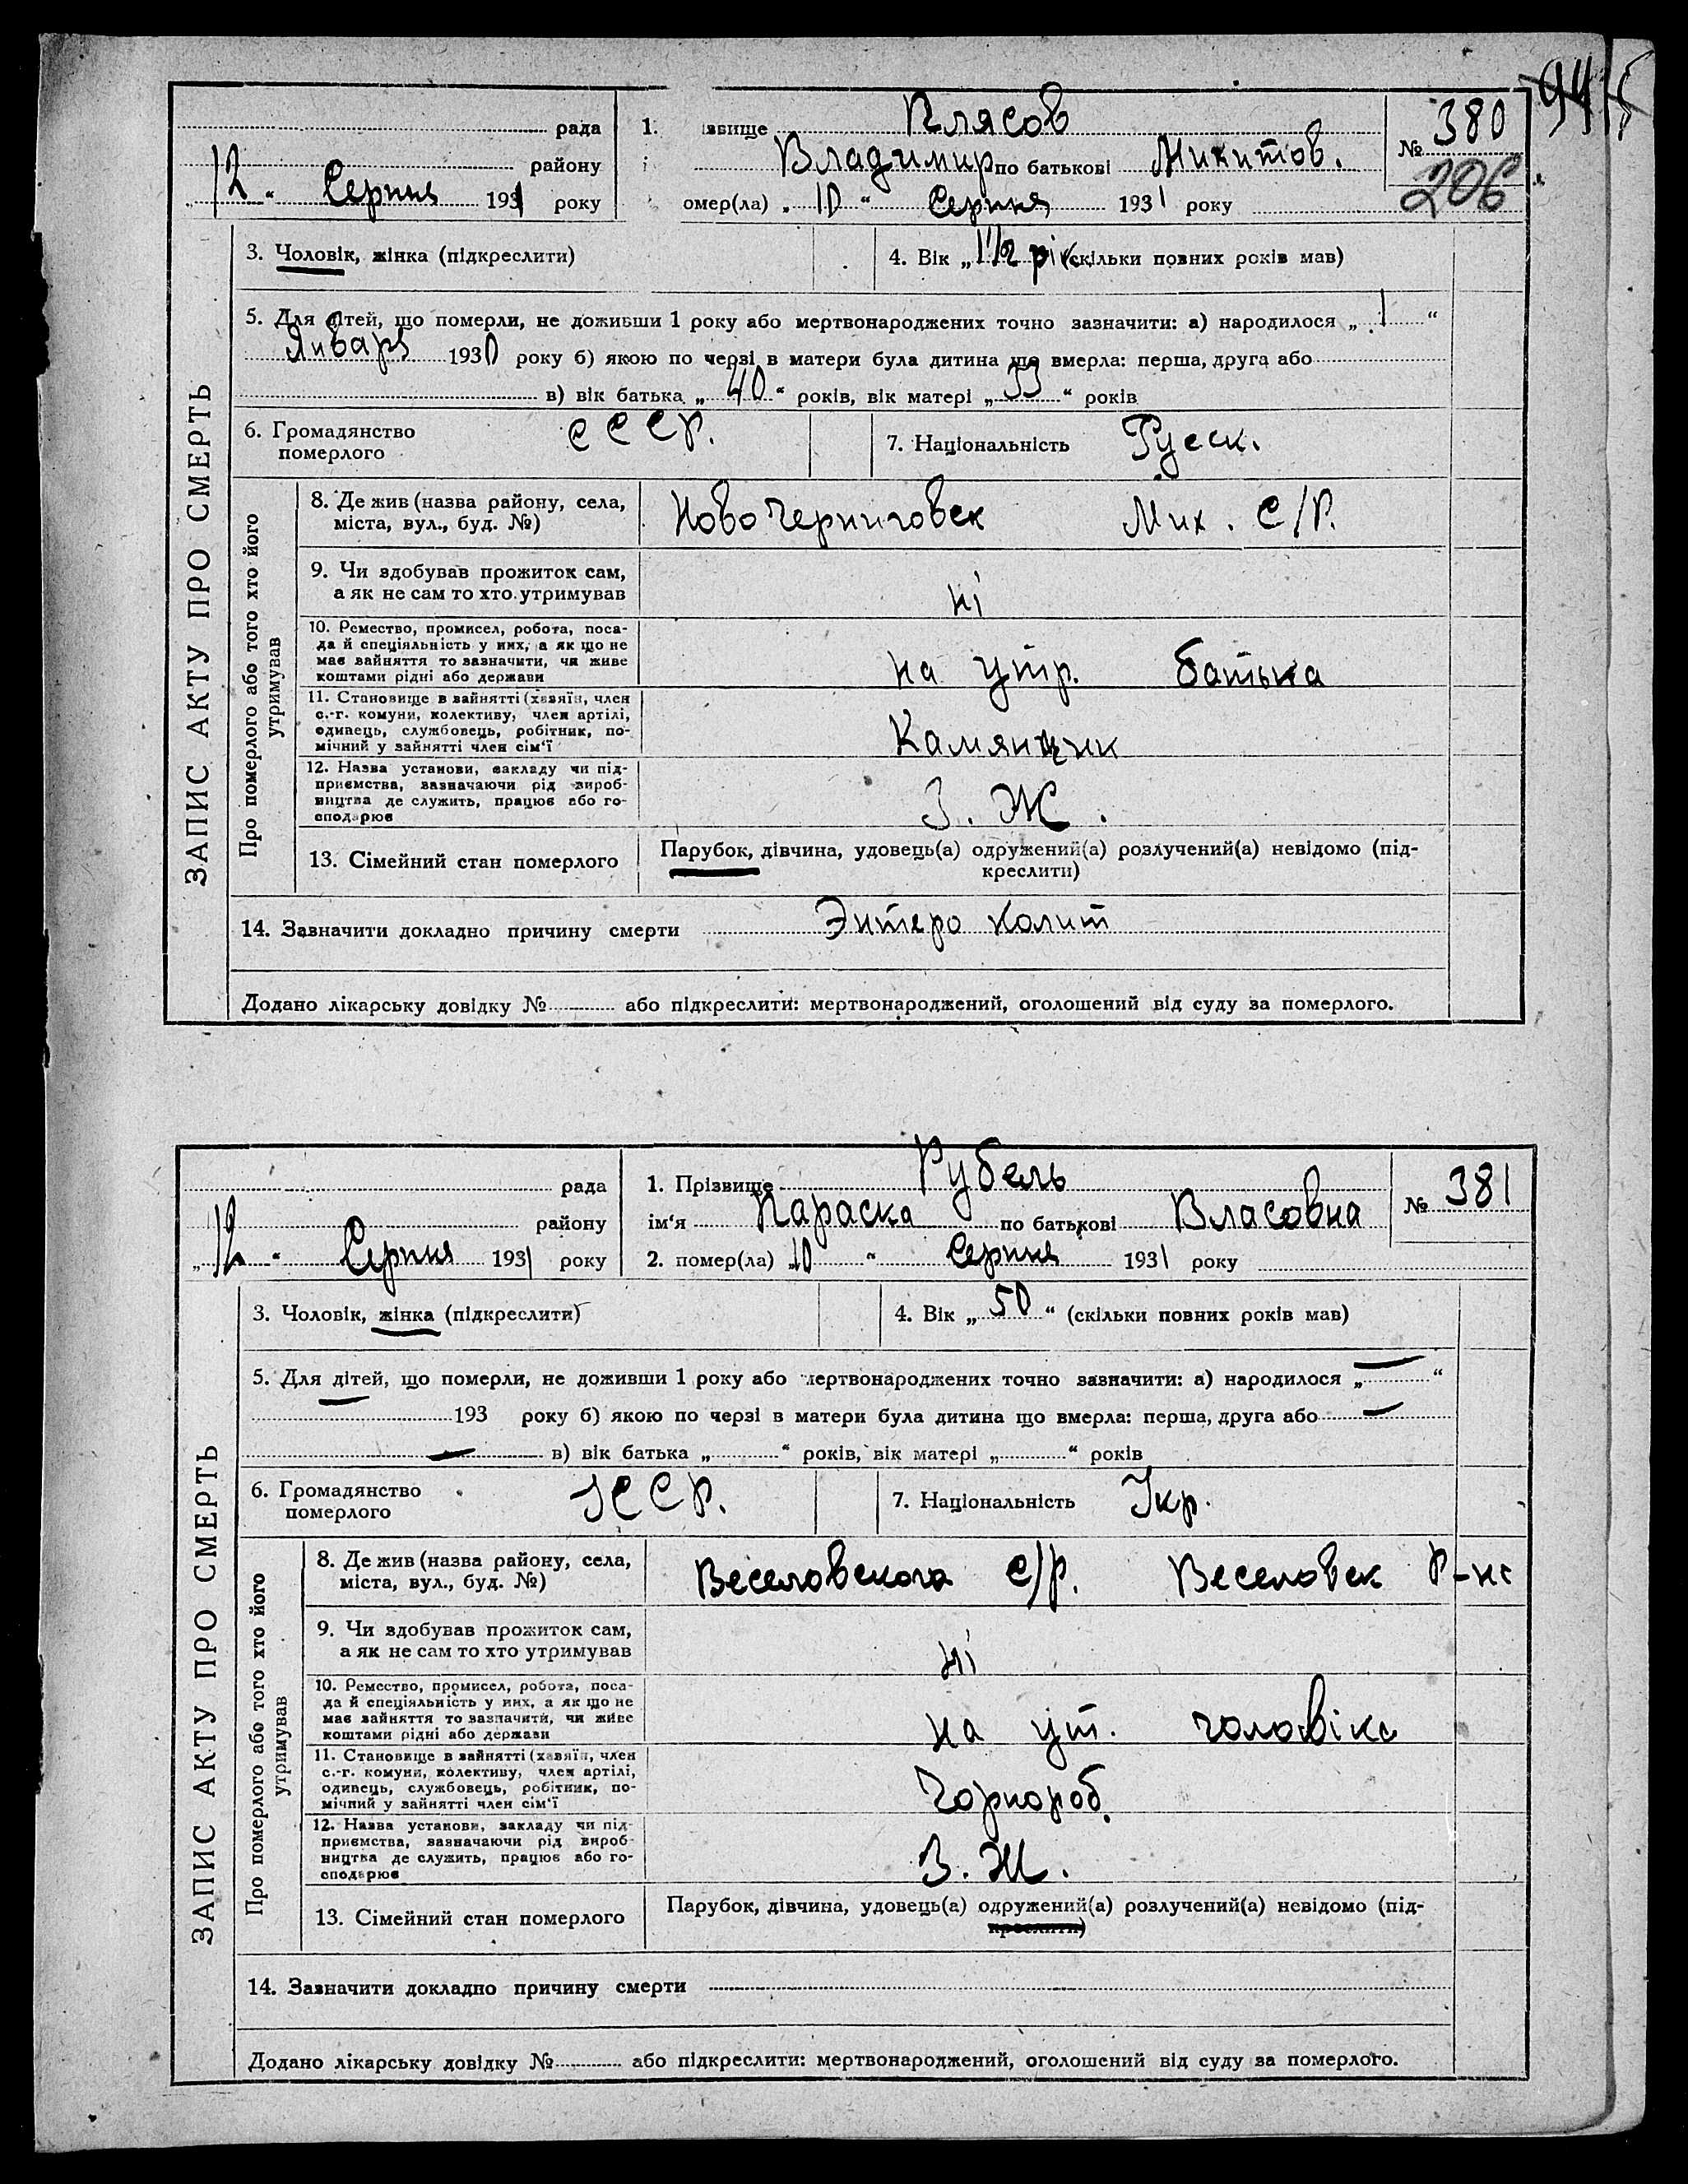 рада
району
„12“ Серпня 1931 року
1. звище Плясов
Владимир по батькові Микитов.
омер(ла) „10“ Серпня 1931 року
№ 380
206
3. Чоловік, жінка (підкреслити)
4. Вік „1 1/2 рік (скільки повних років мав)
5. Для дітей, що померли, не доживши 1 року або мертвонароджених точно зазначити: а) народилося „1“
Январь 1930 року б) якою по черзі в матери була дитина що вмерла: перша, друга або
в) вік батька „40“ років, вік матері „33“ років
6. Громадянство
померлого
СССР.
7. Національність Русск.
ЗАПИС АКТУ ПРО СМЕРТЬ
Про померлого або того хто його
утримував
8. Де жив (назва району, села,
міста, вул., буд. №)
Ново Черниговск Мих. С/Р.
9. Чи здобував прожиток сам,
а як не сам то хто утримував
ні
10. Ремество, промисел, робота, поса-
да й спеціяльність у них, а як що не
має зайняття то зазначити, чи живе
коштами рідні або держави
на утр. батька
11. Становище в зайнятті (хазяїн, член
с.-г. комуни, колективу, член артілі,
одинець, службовець, робітник, по-
мічний у зайнятті член сім'ї
Камянщик
12. Назва установи, закладу чи під-
приємства, зазначаючи рід вироб-
ництва де служить, працює або го-
сподарює
З. Ж.
13. Сімейний стан померлого
Парубок, дівчина, удовець(а) одружений(а) розлучений(а) невідомо (під-
креслити)
14. Зазначити докладно причину смерти Энтеро колит
Додано лікарську довідку № або підкреслити: мертвонароджений, оголошений від суду за померлого.
рада
району
„12“ Серпня 1931 року
1. Прізвище Рубель
ім'я Параска по батькові Власовна
2. помер(ла) „10“ Серпня 1931 року
№ 381
3. Чоловік, жінка (підкреслити)
4. Вік „50“ (скільки повних років мав)
5. Для дітей, що померли, не доживши 1 року або мертвонароджених точно зазначити: а) народилося „—“
193 року б) якою по черзі в матери була дитина що вмерла: перша, друга або —
— в) вік батька „ “ років, вік матері „ “ років
6. Громадянство
померлого
УССР.
7. Національність Укр.
ЗАПИС АКТУ ПРО СМЕРТЬ
Про померлого або того хто його
утримував
8. Де жив (назва району, села,
міста, вул., буд. №)
Веселовского С/Р. Веселовск Р-на
9. Чи здобував прожиток сам,
а як не сам то хто утримував
ні
10. Ремество, промисел, робота, поса-
да й спеціяльність у них, а як що не
має зайняття то зазначити, чи живе
коштами рідні або держави
на ут. чоловіка
11. Становище в зайнятті (хазяїн, член
с.-г. комуни, колективу, член артілі,
одинець, службовець, робітник, по-
мічний у зайнятті член сім'ї
Чорнороб.
12. Назва установи, закладу чи під-
приємства, зазначаючи рід вироб-
ництва де служить, працює або го-
сподарює
З. Ж.
13. Сімейний стан померлого
Парубок, дівчина, удовець(а) одружений(а) розлучений(а) невідомо (під-
креслити)
14. Зазначити докладно причину смерти
Додано лікарську довідку № або підкреслити: мертвонароджений, оголошений від суду за померлого.